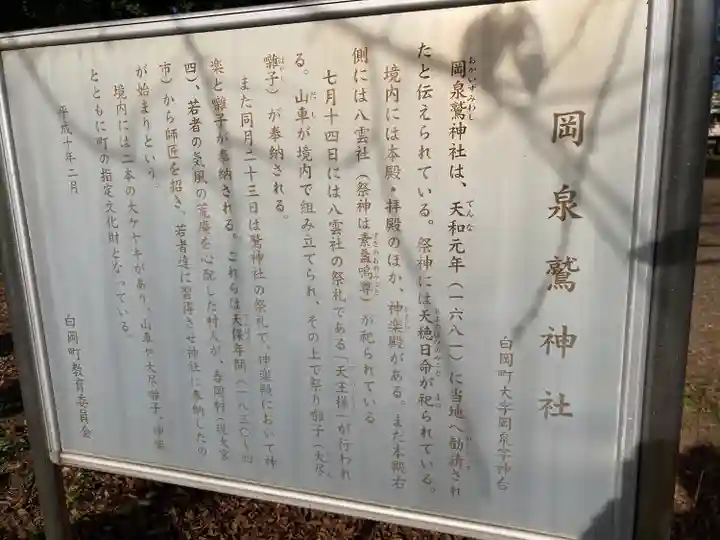 岡泉鷲神社
白岡町大字岡泉字神台
岡泉鷲神社は、天和元年（一六八一）に当地へ勧請され
たと伝えられている。祭神には天穂日命が祀られている。
境内には本殿・拝殿のほか、神楽殿がある。また本殿右
側には八雲社（祭神は素盞嗚尊）が祀られている
七月十四日には八雲社の祭礼である「天王様」が行われ
る。山車が境内で組み立てられ、その上で祭り囃子（大尽
囃子）が奉納される。
また同月二十三日は鷲神社の祭礼で、神楽殿において神
楽と囃子が奉納される。これらは天保年間（一八三〇〜四
四）、若者の気風の荒廃を心配した村人が、春岡村（現大宮
市）から師匠を招き、若者達に習得させ神社に奉納したの
が始まりという。
境内には二本の大ケヤキがあり、山車や大尽囃子、神楽
とともに町の指定文化財となっている。
平成十年二月
白岡町教育委員会